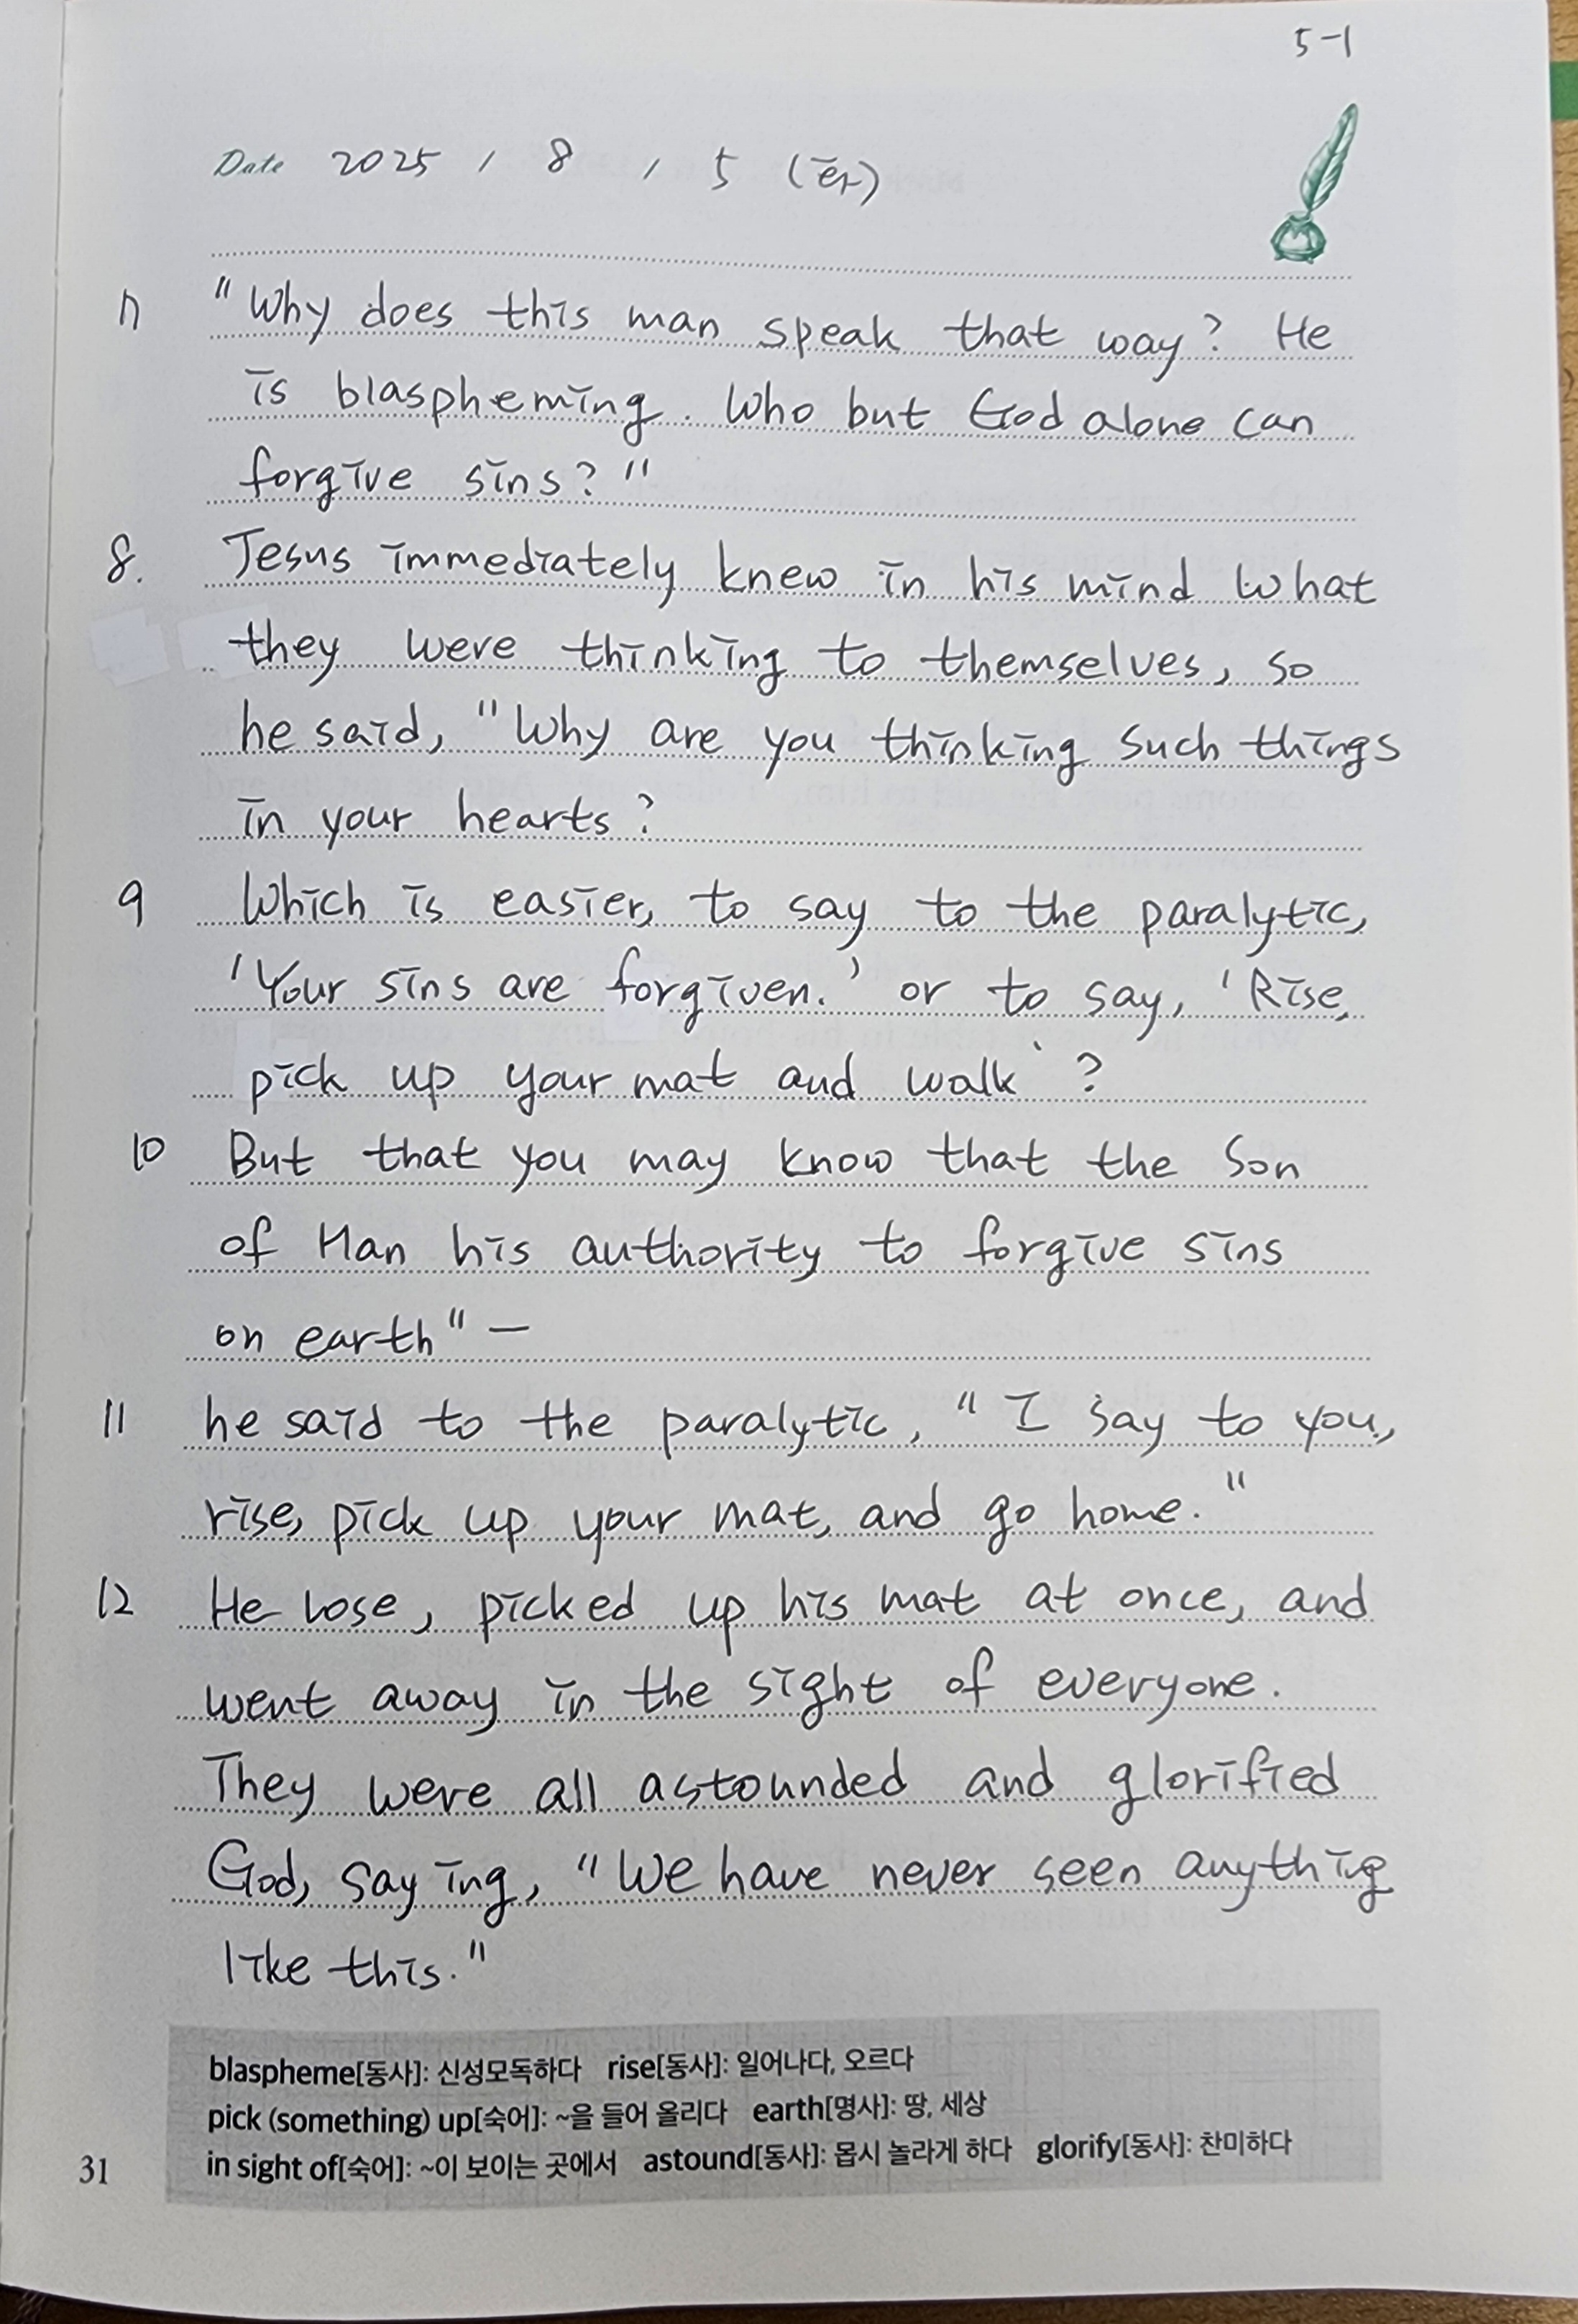 5-1
Date 2025 / 8 / 5 (화)
7 "Why does this man speak that way? He
is blaspheming. Who but God alone can
forgive sins?"
8. Jesus immediately knew in his mind what
they were thinking to themselves, so
he said, "Why are you thinking such things
in your hearts?
9 Which is easier, to say to the paralytic,
'Your sins are forgiven.' or to say, 'Rise,
pick up your mat and walk'?
10 But that you may know that the Son
of Man his authority to forgive sins
on earth" —
11 he said to the paralytic, "I say to you,
rise, pick up your mat, and go home."
12 He rose, picked up his mat at once, and
went away in the sight of everyone.
They were all astounded and glorified
God, saying, "We have never seen anything
like this."
blaspheme[동사]: 신성모독하다 rise[동사]: 일어나다, 오르다
pick (something) up[숙어]: ~을 들어 올리다 earth[명사]: 땅, 세상
in sight of[숙어]: ~이 보이는 곳에서 astound[동사]: 몹시 놀라게 하다 glorify[동사]: 찬미하다
31